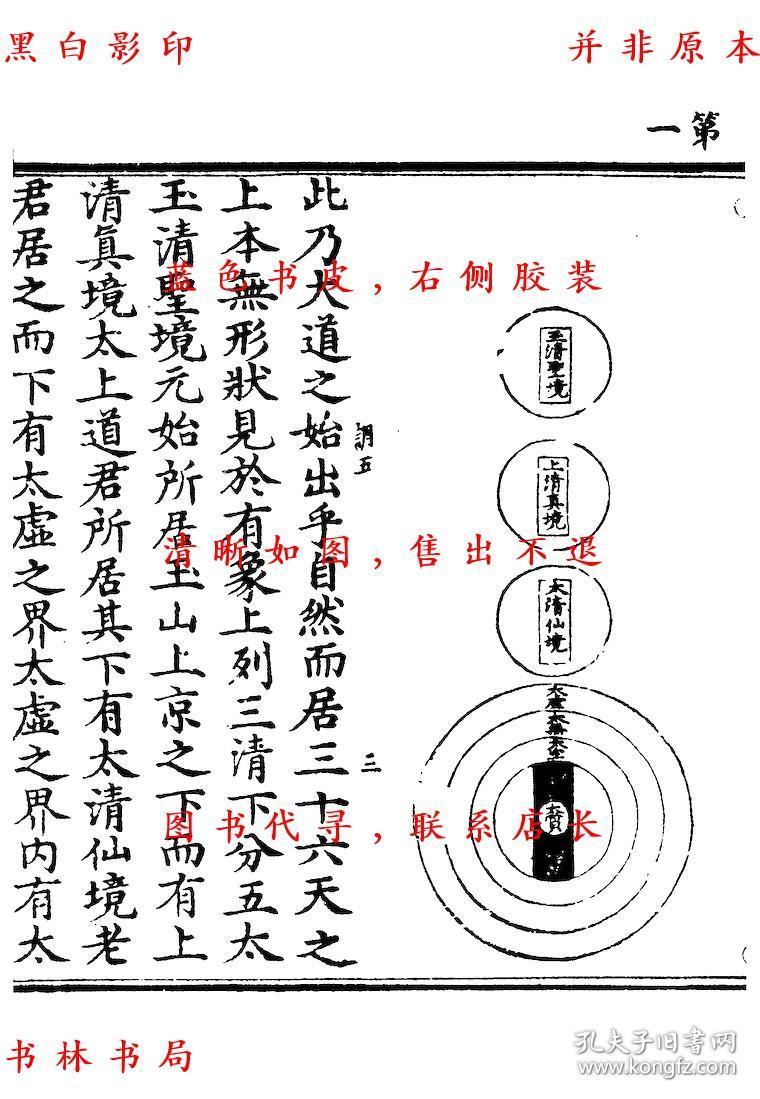 黑白影印
并非原本
第一
玉清聖境
上清真境
太清仙境
調五
三
此乃大道之始出乎自然而居三十六天之
上本無形狀見於有象上列三清下分五太
玉清聖境元始所居玉山上京之下而有上
清眞境太上道君所居其下有太清仙境老
君居之而下有太虛之界太虛之界內有太
蓝色书皮,右侧胶装
清晰如图,售出不退
图书代寻,联系店长
书林书局
孔夫子旧书网
www.kongfz.com